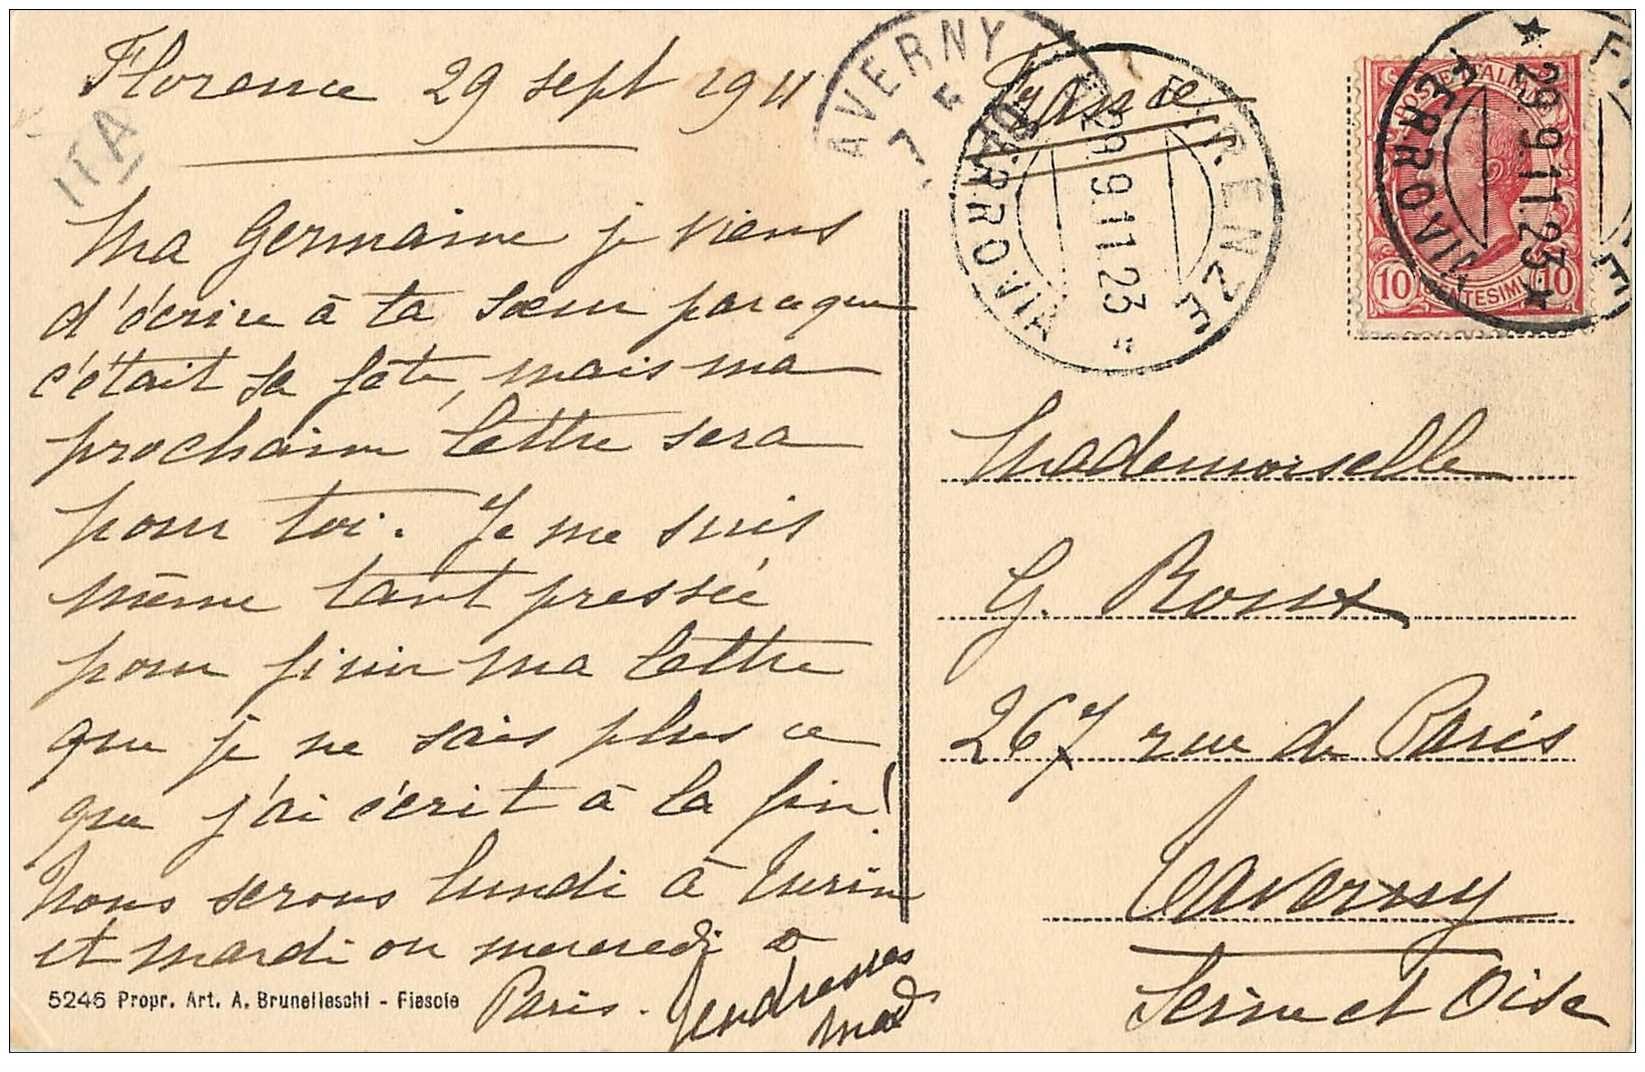 Florence 29 sept 1911
ITA
Ma Germaine je viens
d'écrire à ta sœur parceque
c'était sa fête, mais ma
prochaine lettre sera
pour toi. Je me suis
même tant pressée
pour finir ma lettre
que je ne sais plus ce
que j'ai écrit à la fin!
Nous serons lundi à Turin
et mardi ou mercredi à
Paris. Tendresses
Mad
5246 Propr. Art. A. Brunelleschi - Fiesole
TAVERNY
France
FIRENZE
FERROVIA
29.9.11.23
POSTE ITALIANE
10 CENTESIMI 10
FERROVIA
29.9.11.23
Mademoiselle
G. Roux
267 rue de Paris
Taverny
Seine et Oise